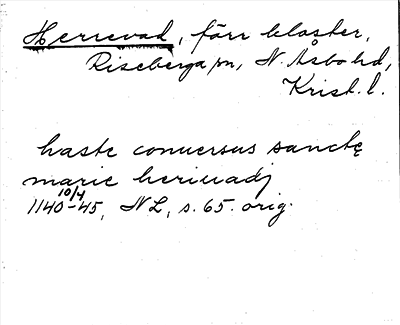 Herrevad, förr kloster,
Riseberga sn, N. Åsbo hd,
Krist. l.
haste conuersus sanctę
marie heriuadj
10/4
1140-45, NL, s. 65. orig.